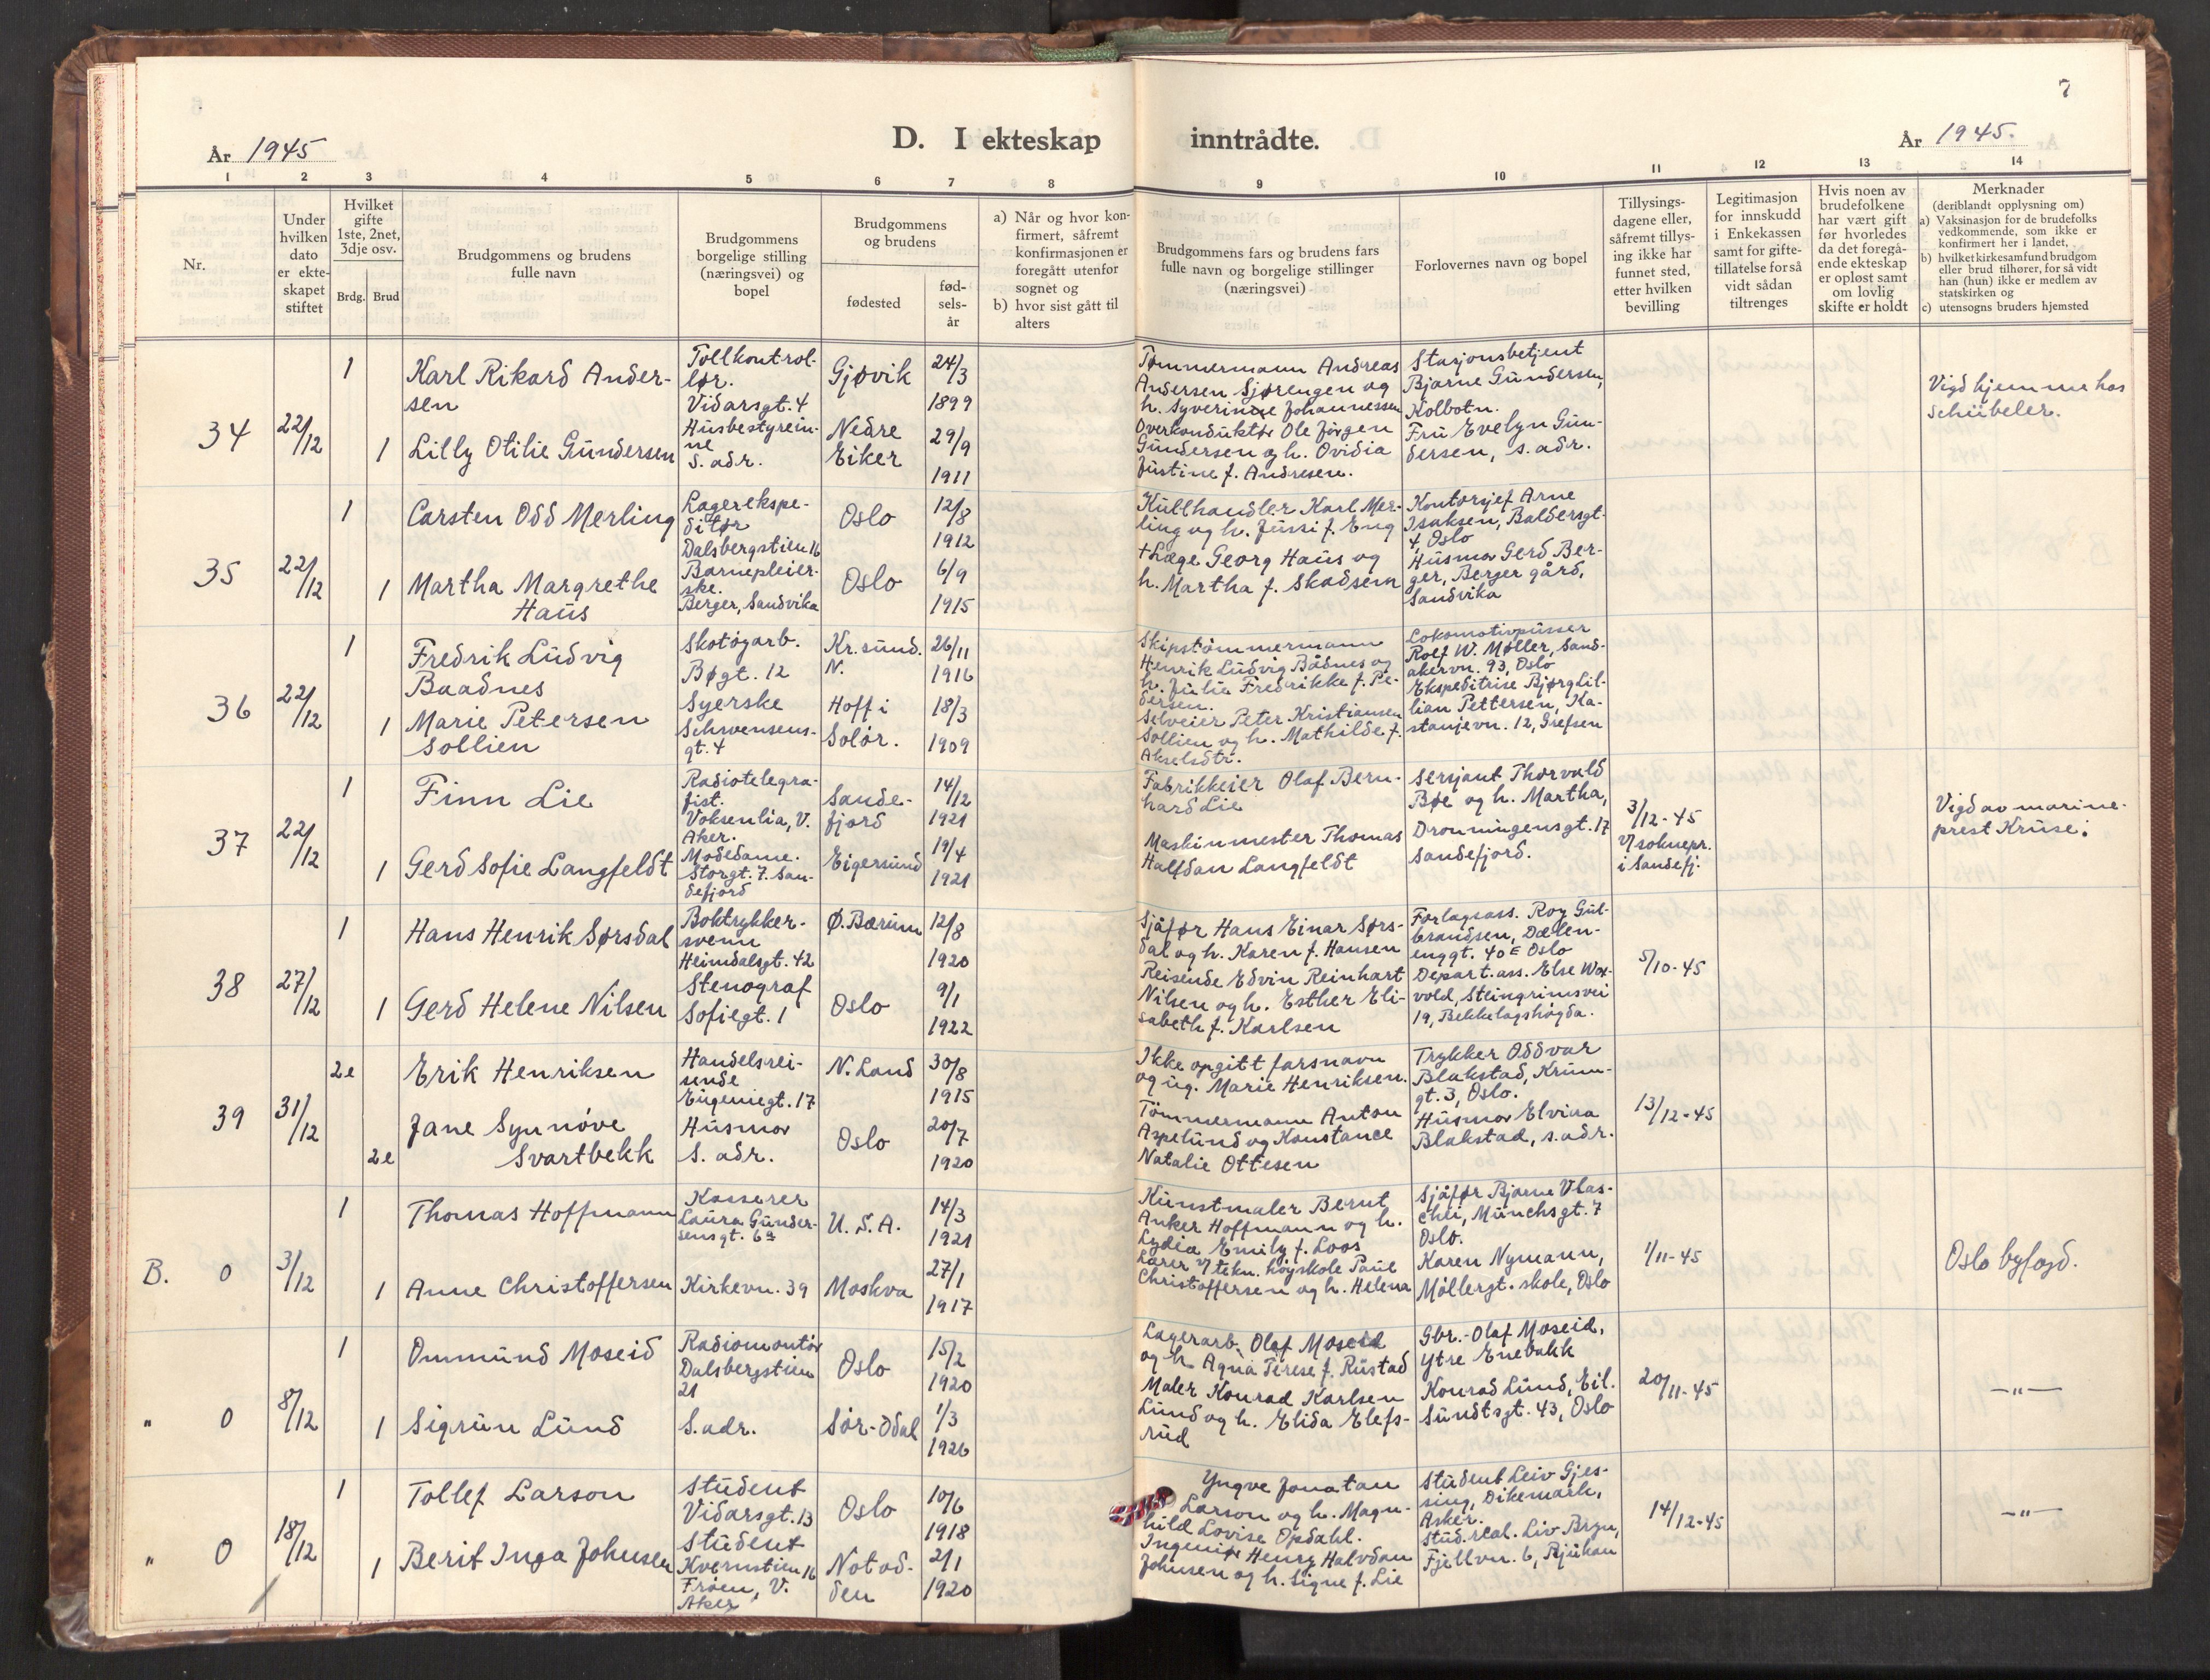 7
År 1945
D. I ekteskap inntrådte.
År 1945.
1 2 3 4 5 6 7 8 9 10 11 12 13 14
Nr.
Under
hvilken
dato
er ekte-
skapet
stiftet
Hvilket
gifte
1ste, 2net,
3dje osv.
Brdg. Brud
Brudgommens og brudens
fulle navn
Brudgommens
borgelige stilling
(næringsvei) og
bopel
Brudgommens
og brudens
fødested
fød-
sels-
år
a) Når og hvor kon-
firmert, såfremt
konfirmasjonen er
foregått utenfor
sognet og
b) hvor sist gått til
alters
Brudgommens fars og brudens fars
fulle navn og borgelige stillinger
(næringsvei)
Forlovernes navn og bopel
Tillysings-
dagene eller,
såfremt tillys-
ing ikke har
funnet sted,
etter hvilken
bevilling
Legitimasjon
for innskudd
i Enkekassen
samt for gifte-
tillatelse for så
vidt sådan
tiltrenges
Hvis noen av
brudefolkene
har vært gift
før hvorledes
da det foregå-
ende ekteskap
er opløst samt
om lovlig
skifte er holdt
Merknader
(deriblandt opplysning om)
a) Vaksinasjon for de brudefolks
vedkommende, som ikke er
konfirmert her i landet,
b) hvilket kirkesamfund brudgom
eller brud tilhører, for så vidt
han (hun) ikke er medlem av
statskirken og
c) utensogns bruders hjemsted
34
22/12
1
Karl Rikard Ander-
sen
Tollkontrol-
lør.
Vidarsgt. 4
Gjøvik
24/3
1899
1
Lilly Otilie Gundersen
Husbestyrerin-
ne
S. adr.
Nedre
Eiker
29/9
1911
Tømmermann Andreas
Andersen Sjørengen og
h. Syverine Johannessen
Overkonduktør Ole Jørgen
Gundersen og h. Ovidia
Justine f. Andresen.
Stasjonsbetjent
Bjarne Gundersen,
Kolbotn.
Fru Evelyn Gun-
dersen, s. adr.
Vigd hjemme hos
Schübeler.
35
22/12
1
Carsten Odd Merling
Lagerekspe-
ditør
Dalsbergstien 16
Oslo
12/8
1912
1
Martha Margrethe
Haus
Barnepleier-
ske.
Berger, Sandvika
Oslo
6/9
1915
Kullhandler Karl Mer-
ling og h. Jussi f. Eng
+ Læge Georg Haus og
h. Martha f. Skadsem
Kontorsjef Arne
Isaksen, Baldersgt.
4, Oslo
Husmor Gerd Ber-
ger, Berger gård,
Sandvika
36
22/12
1
Fredrik Ludvig
Baadnes
Skotøyarb.
Bøgt. 12
Kr.sund.
N.
26/11
1916
1
Marie Petersen
Sollien
Syerske
Schwensens-
gt. 4
Hoff i
Solør.
18/3
1909
Skipstømmermann
Henrik Ludvig Bådnes og
h. Julie Fredrikke f. Pe-
dersen.
Selveier Peter Kristiansen
Sollien og h. Mathilde f.
Akselsdtr.
Lokomotivpusser
Rolf W. Møller, Sand-
akervn. 93, Oslo
Ekspeditrise Bjørg Lil-
lian Pettersen, Ka-
stanjevn. 12, Grefsen
37
22/12
1
Finn Lie
Radiotelegra-
fist.
Voksenlia, V.
Aker.
Sande-
fjord
14/12
1921
1
Gerd Sofie Langfeldt
Modedame.
Storgt. 7. San-
defjord
Eigersund
19/4
1921
Fabrikkeier Olaf Bern-
hard Lie
Maskinmester Thomas
Halfdan Langfeldt
Sersjant Thorvald
Bøe og h. Martha,
Dronningensgt. 17
Sandefjord.
3/12-45
v/ soknepr.
i Sandefj.
Vigd av marine-
prest Kruse.
38
27/12
1
Hans Henrik Sørsdal
Boktrykker-
svenn
Heimdalsgt. 42
Ø. Bærum
12/8
1920
1
Gerd Helene Nilsen
Stenograf
Sofiegt. 1
Oslo
9/1
1922
Sjåfør Hans Einar Sørs-
dal og h. Karen f. Hansen
Reisende Edvin Reinhart
Nilsen og h. Esther Eli-
sabeth f. Karlsen
Forlagsass. Roy Gul-
brandsen, Dælen-
enggt. 40E Oslo
Depart. ass. Else Wox-
vold, Steingrimsvei
19, Bekkelagshøgda.
5/10-45
39
31/12
2e
Erik Henriksen
Handelsrei-
sende
Eugeniegt. 17
N. Land
30/8
1915
2e
Jane Synnöve
Svartbekk
Husmor
S. adr.
Oslo
20/7
1920
Ikke opgitt farsnavn
og ug. Marie Henriksen.
Tömmermann Anton
Aspelund og Konstance
Natalie Ottesen
Trykker Oddvar
Blakstad, Krum-
gt. 3, Oslo.
Husmor Elvira
Blakstad, s. adr.
13/12-45
B. 0
3/12
1
Thomas Hoffmann
Kasserer
Laura Gunder-
sensgt. 6a
U.S.A.
14/3
1921
1
Anne Christoffersen
Kirkevn. 39
Moskva
27/1
1917
Kunstmaler Bernt
Anker Hoffmann og h.
Lydia Emily f. Loos
Lærer v/ tekn. høyskole Paul
Christoffersen og h. Helena
Sjåfør Bjarne Vlas-
chei, Munchsgt. 7
Oslo.
Karen Nymann,
Möllergt. skole, Oslo
1/11-45
Oslo byfogd.
" 0
8/12
1
Ommund Moseid
Radiomontør
Dalsbergstien
21
Oslo
15/2
1920
1
Sigrun Lund
S. adr.
Sör-Odal
1/3
1926
Lagerarb. Olaf Moseid
og h. Agna Terese f. Rustad
Maler Konrad Karlsen
Lund og h. Elida Elefs-
rud
Gbr. Olaf Moseid,
Ytre Enebakk
Konrad Lund, Eil.
Sundtsgt. 43, Oslo
20/11-45
—"—
" 0
18/12
1
Tollef Larson
Student
Vidarsgt. 13
Oslo
10/6
1918
1
Berit Inga Johnsen
Student
Kvernstien 16
Frøen, V.
Aker
Notod-
den
2/1
1920
Yngve Jonatan
Larson og h. Magn-
hild Lovise Opdahl.
Ingeniør Henry Halvdan
Johnsen og h. Signe f. Lie
Student Leiv Gjes-
sing, Dikemark,
Asker.
Stud. real. Liv Bryn,
Fjellvn. 6, Rjukan
14/12-45
—"—